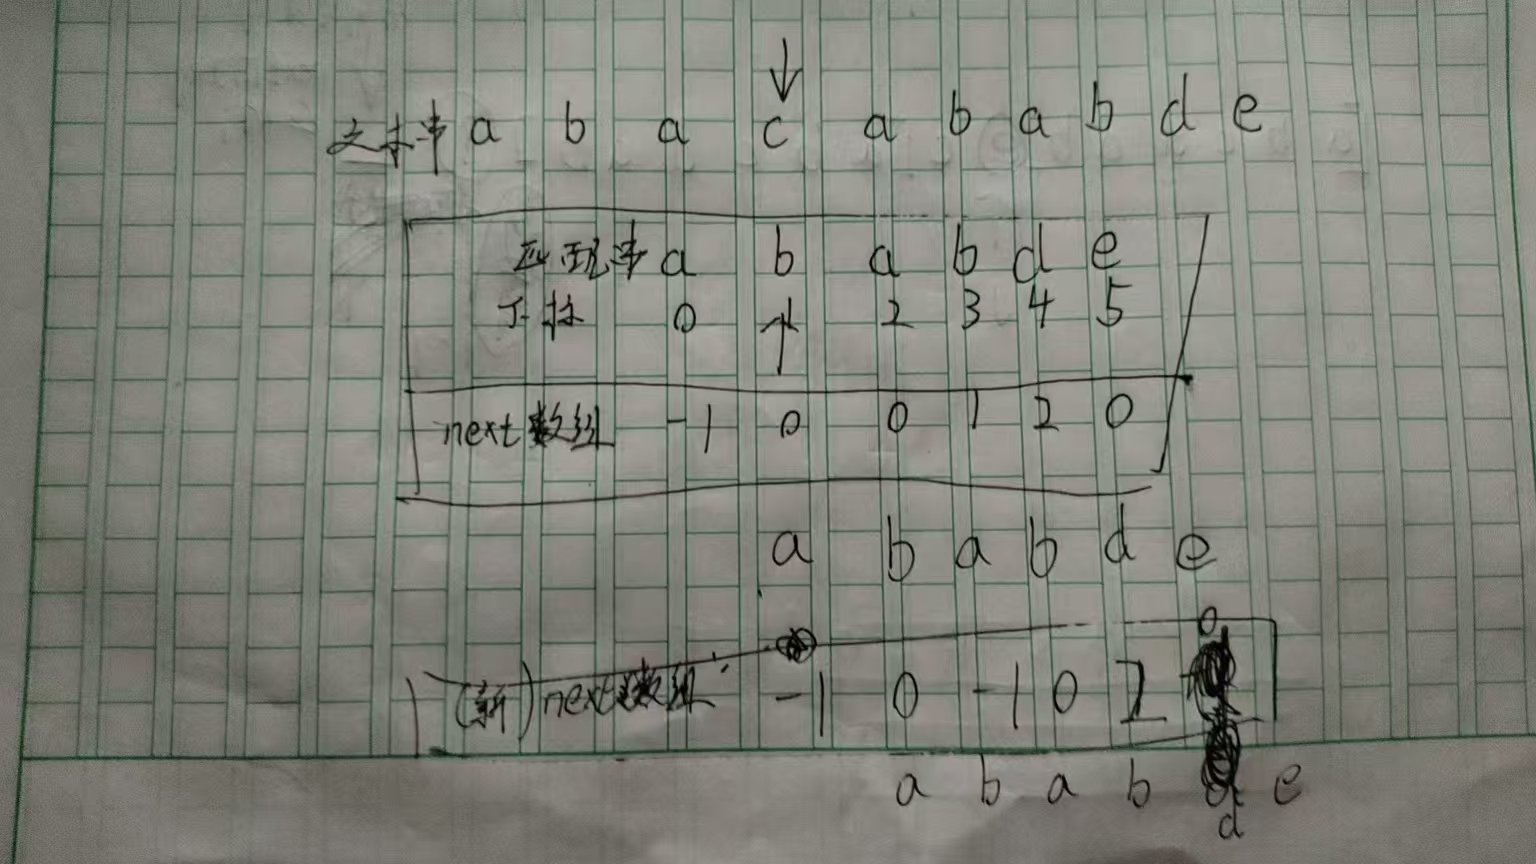 文本串 a b a c a b a b d e
匹配串 a b a b d e
下标 0 1 2 3 4 5
next数组 -1 0 0 1 2 0
a b a b d e
0
(新)next数组 -1 0 -1 0 2
a b a b d e